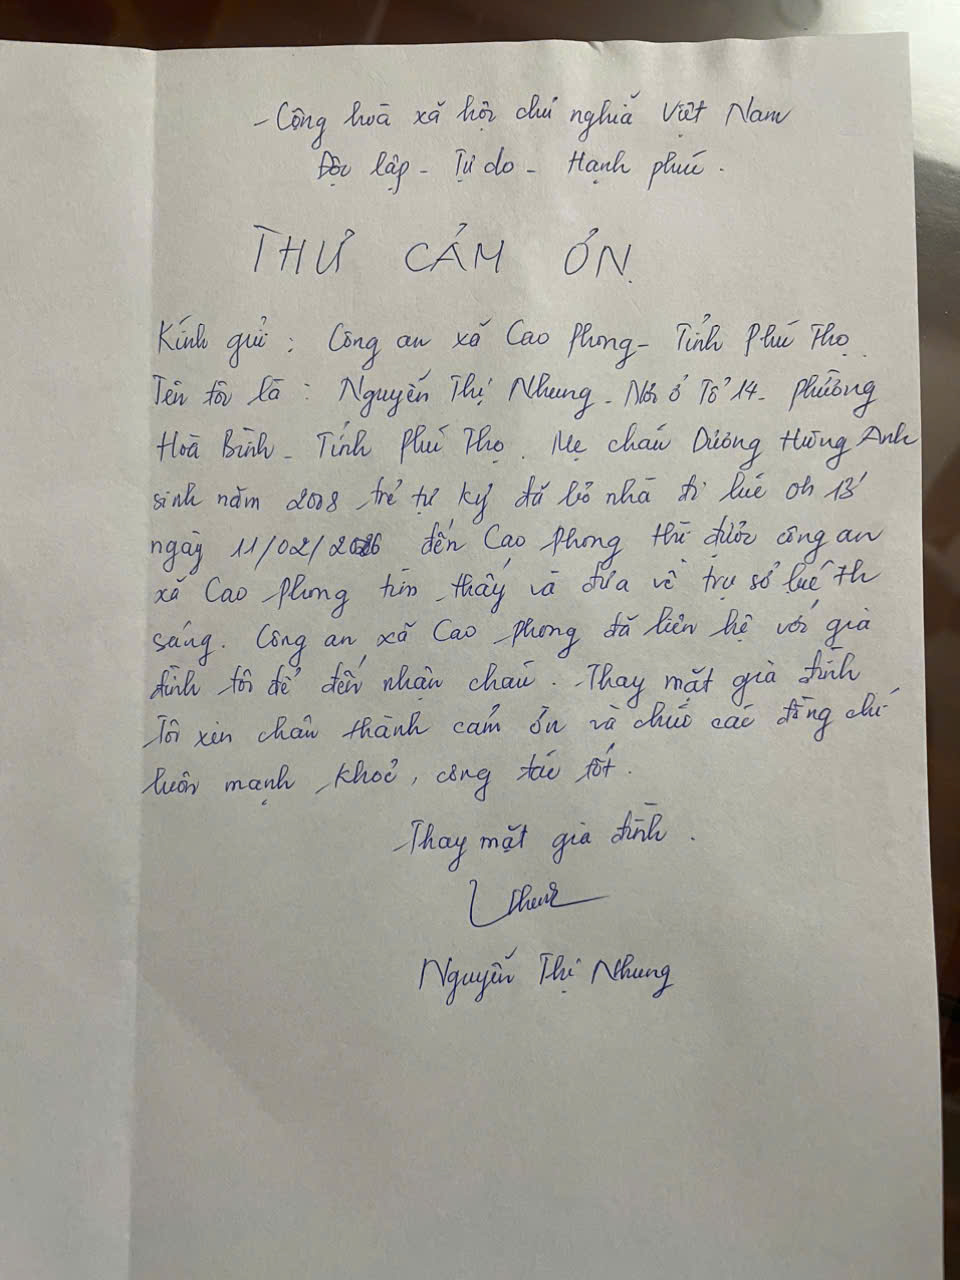 - Cộng hoà xã hội chủ nghĩa Việt Nam
Độc lập - Tự do - Hạnh phúc.
THƯ CẢM ƠN
Kính gửi: Công an xã Cao Phong - Tỉnh Phú Thọ.
Tên tôi là: Nguyễn Thị Nhung - Nơi ở Tổ 14 - phường
Hoà Bình - Tỉnh Phú Thọ. Mẹ cháu Dương Hưng Anh
sinh năm 2008 trẻ tự kỷ đã bỏ nhà đi lúc 0h 13'
ngày 11/02/2026 đến Cao Phong thì được công an
xã Cao Phong tìm thấy và đưa về trụ sở lúc
sáng. Công an xã Cao Phong đã liên hệ với gia
đình tôi để đến nhận cháu. Thay mặt gia đình
Tôi xin chân thành cảm ơn và chúc các đồng chí
luôn mạnh khoẻ, công tác tốt.
Thay mặt gia đình.
Nguyễn Thị Nhung